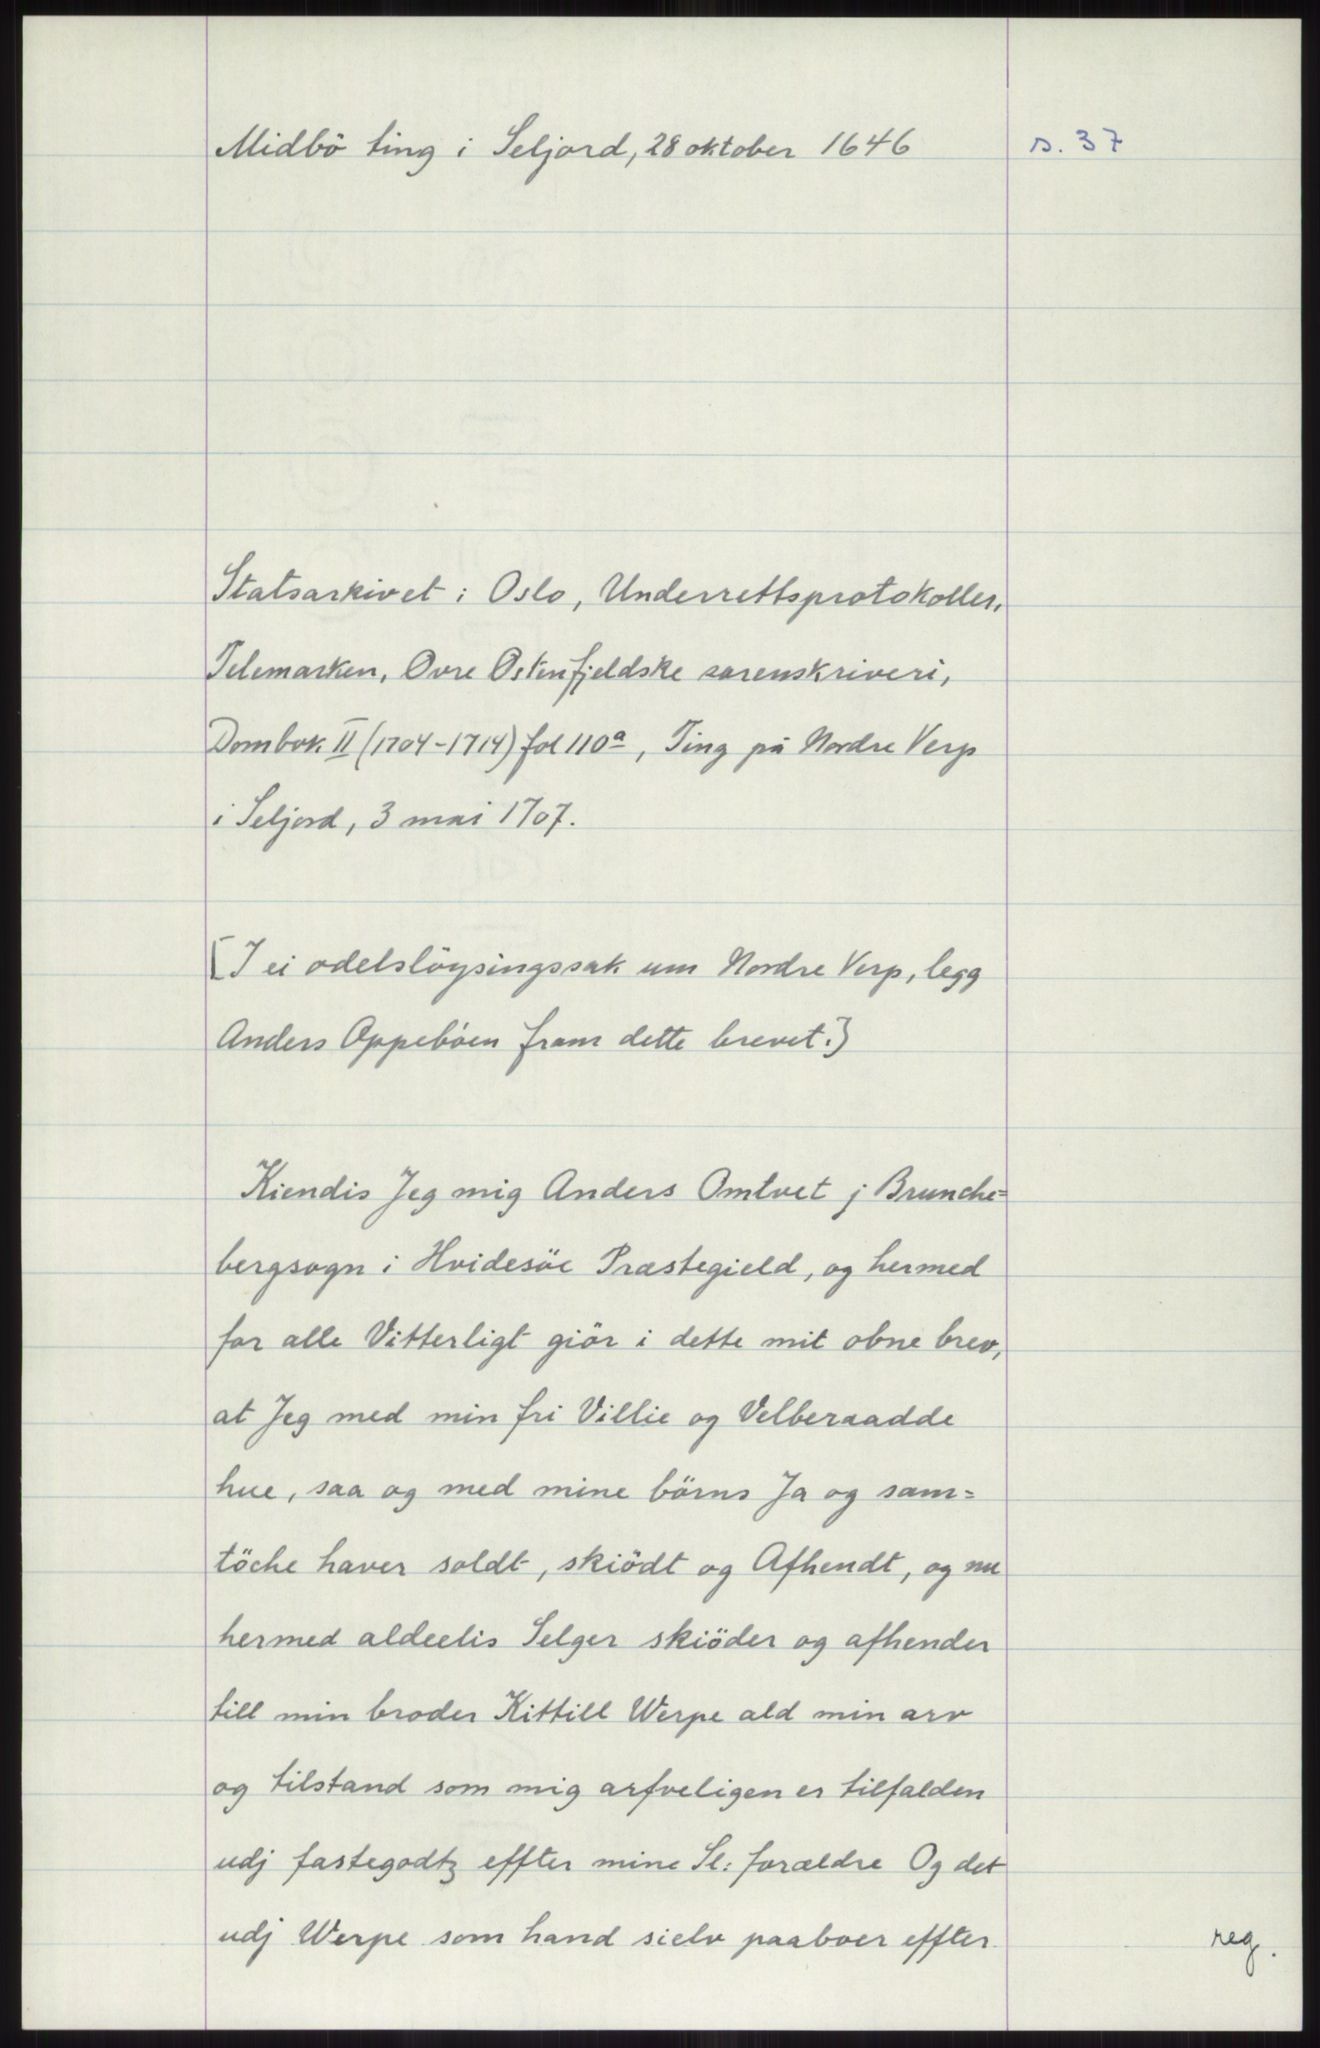 Midbö ting i Seljord, 28 oktober 1646
s. 37
Statsarkivet i Oslo, Underrettsprotokoller,
Telemarken, Øvre Østenfjeldske sorenskriveri,
Dombok II (1704-1714) fol 110a, Ting på Nordre Verp
i Seljord, 3 mai 1707.
[I ei odelslöysingssak um Nordre Verp, legg
Anders Oppeböen fram dette brevet.]
Kiendis Jeg mig Anders Omtvet j Brunche=
bergsogn i Hvidesöe Præstegield, og hermed
for alle Vitterligt giör i dette mit obne brev,
at Jeg med min fri Villie og Velberaadde
hue, saa og med mine börns Ja og sam=
töche haver soldt, skiödt og Afhendt, og nu
hermed aldeelis Selger skiöder og afhender
till min broder Kittill Werpe ald min arv
og tilstand som mig arfveligen er tilfalden
udj fastegodtz effter mine Sl: forældre Og det
udj Werpe som hand sielv paaboer effter
reg.